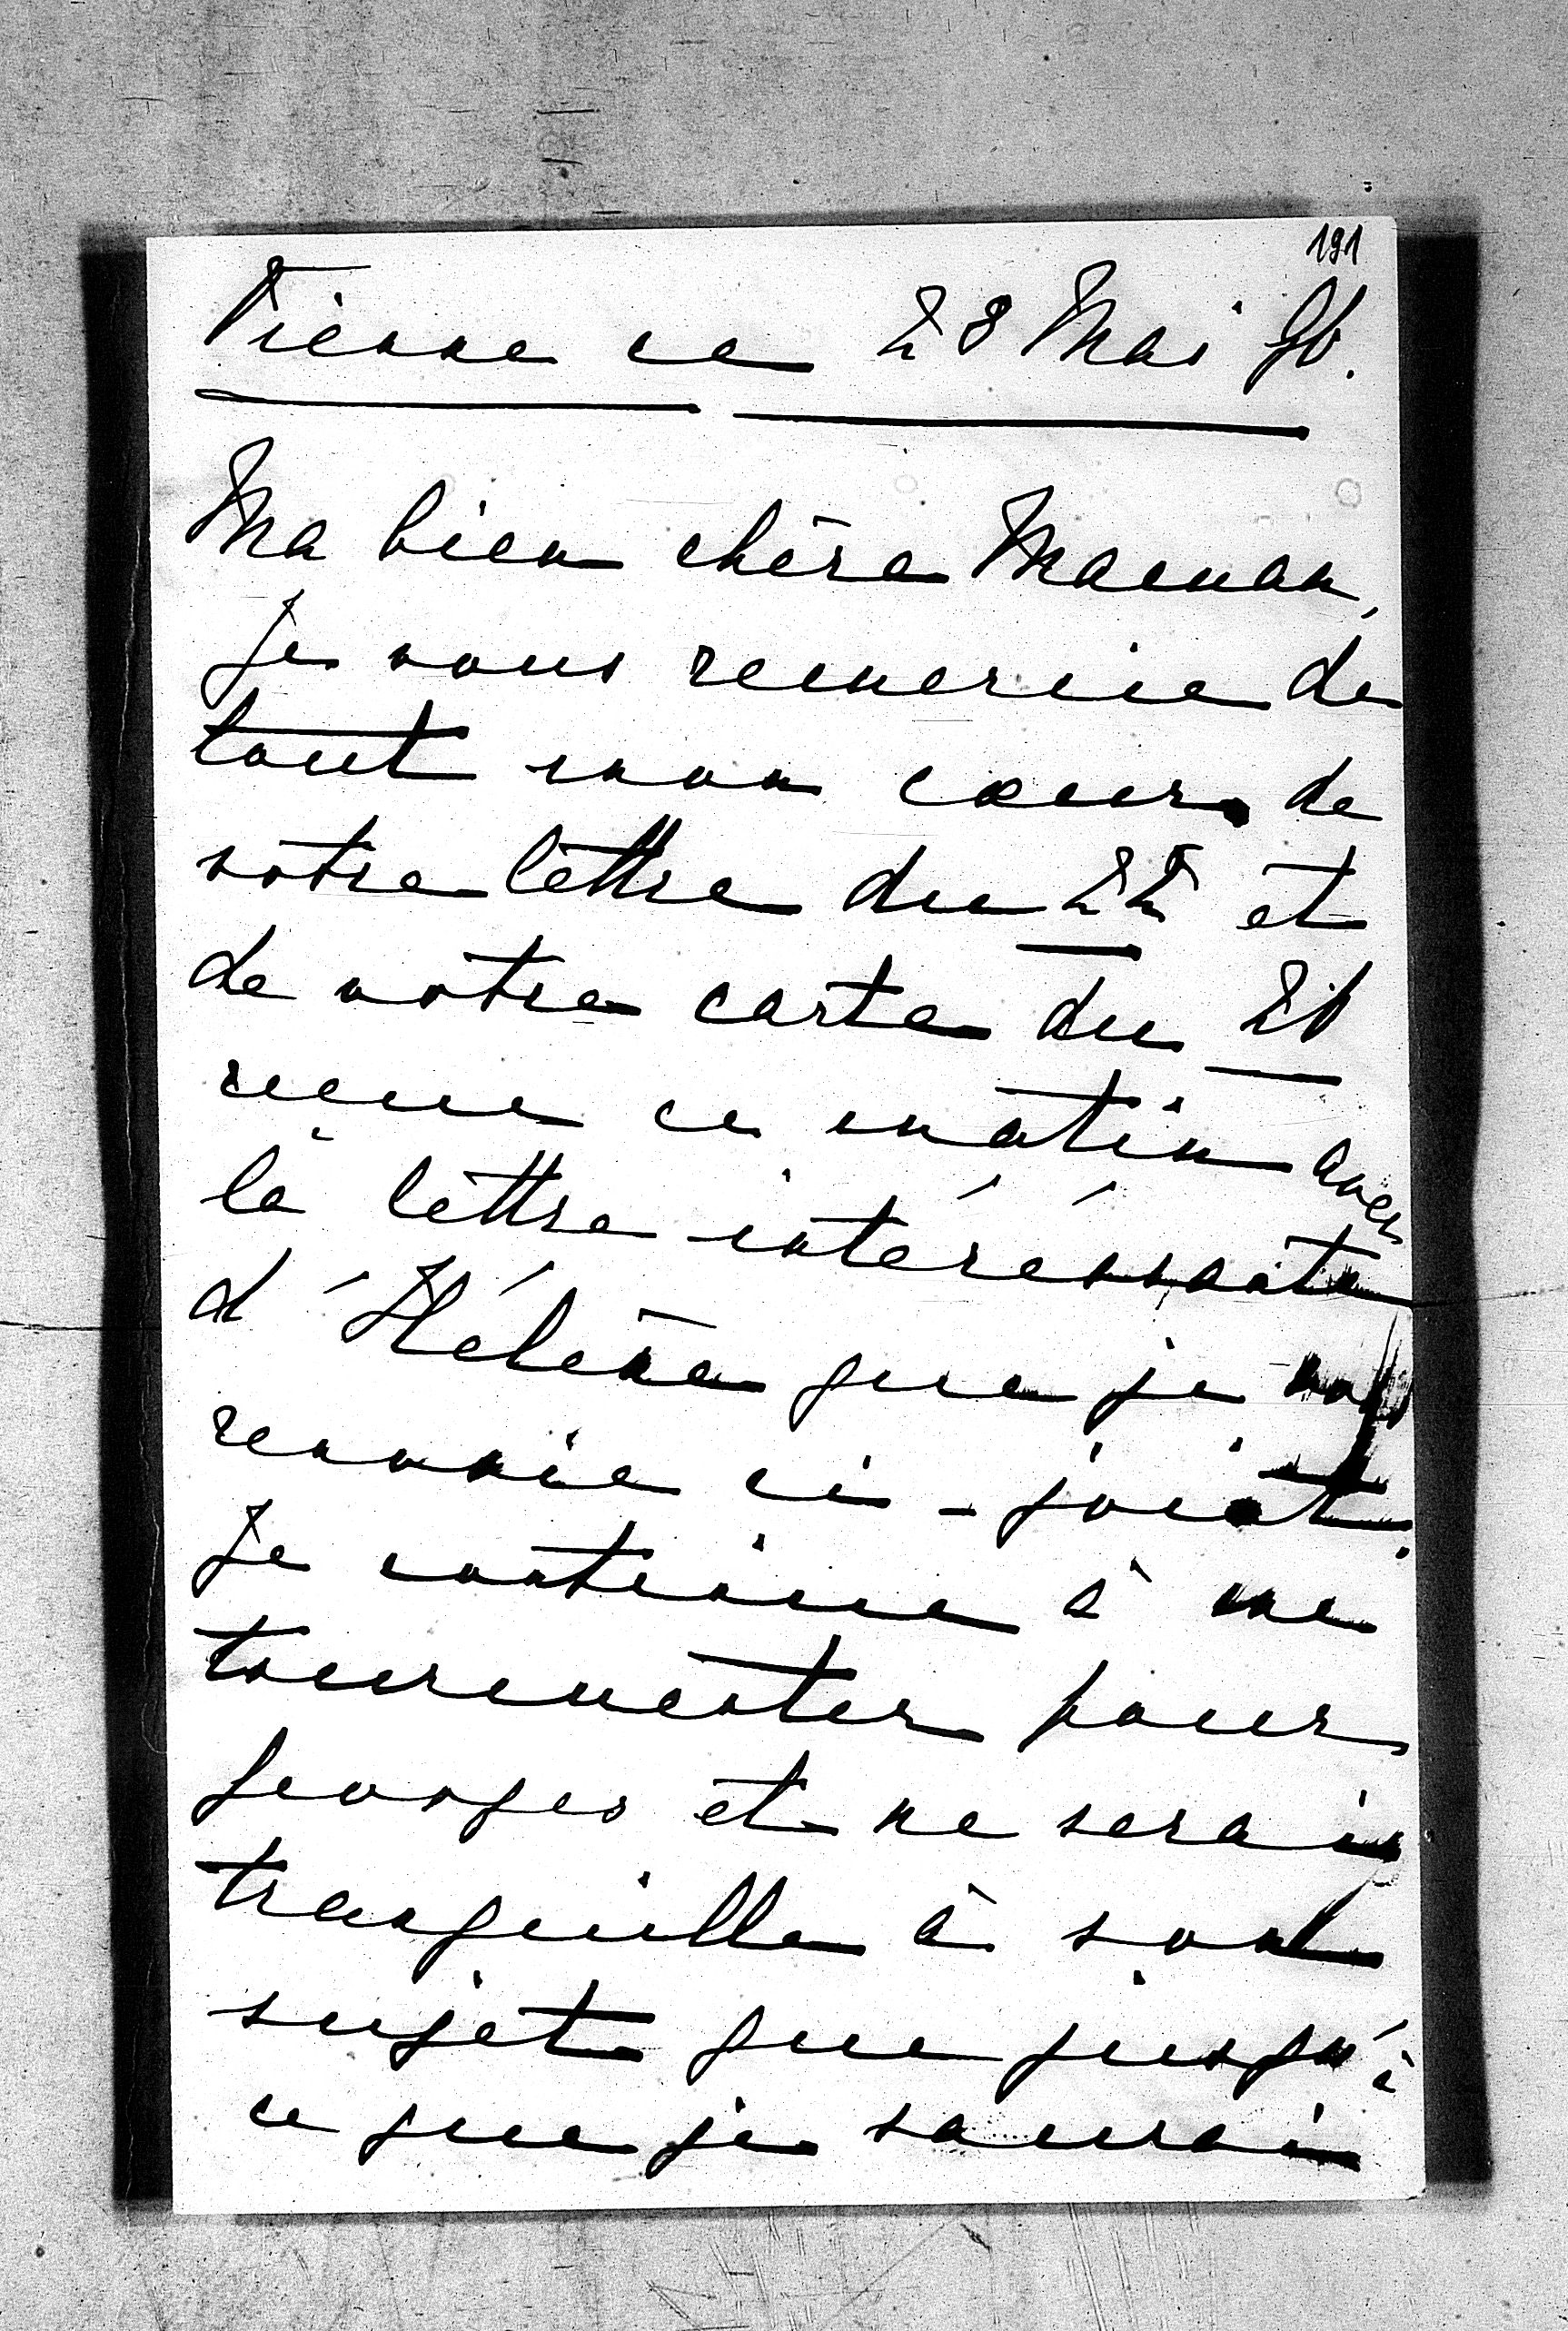 191
Vienne ce 28 Mai 96.
Ma bien chère Maman,
Je vous remercie de
tout mon cœur de
votre lettre du 22 et
de votre carte du 26
reçue ce matin avec
la lettre intéréssante
d'Hélène que je vous
renvoie ci-joint.
Je continue à me
tourmenter pour
Georges et ne serai
tranquille à son
sujet que jusqu'à
ce que je saurai